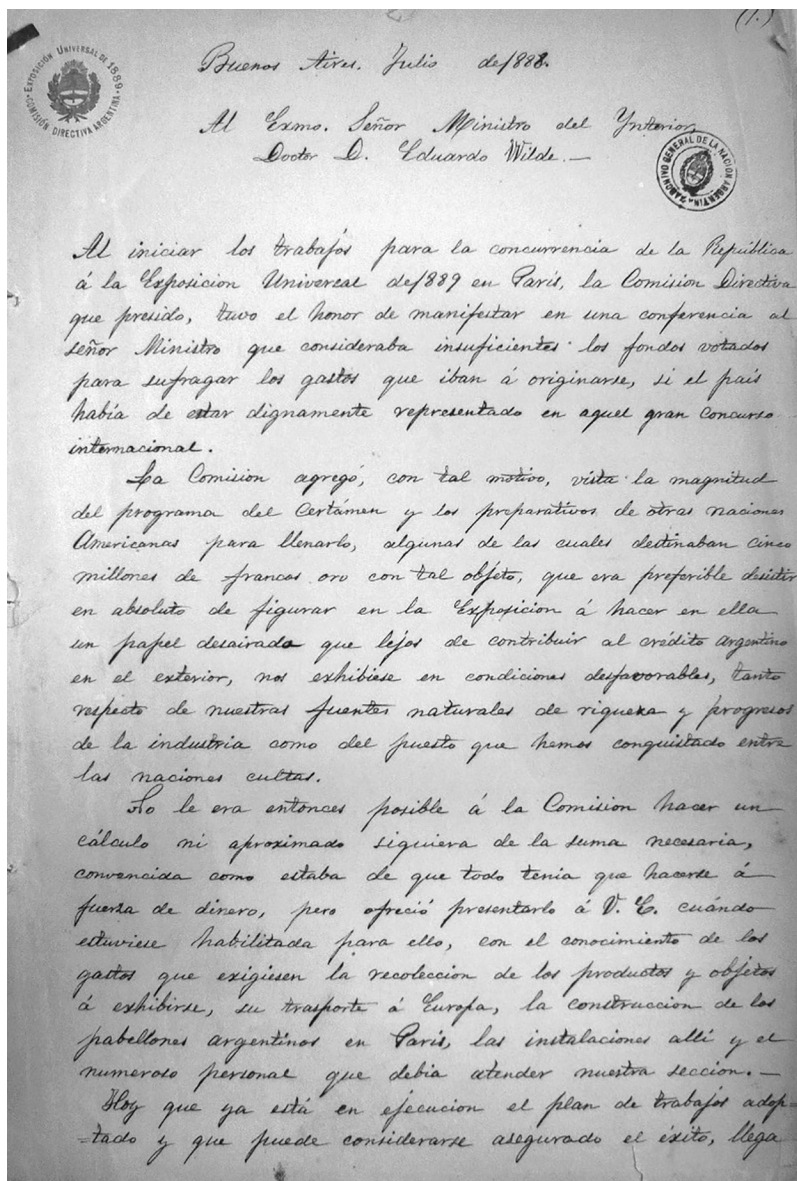 (1.)
EXPOSICIÓN UNIVERSAL DE 1889
COMISIÓN DIRECTIVA ARGENTINA
Buenos Aires. Julio de 1888.
Al Exmo. Señor Ministro del Ynterior,
Doctor D. Eduardo Wilde.—
ARCHIVO GENERAL DE LA NACION ARGENTINA
Al iniciar los trabajos para la concurrencia de la República
á la Exposicion Universal de 1889 en París, la Comision Directiva
que presido, tuvo el honor de manifestar en una conferencia al
señor Ministro que consideraba insuficientes los fondos votados
para sufragar los gastos que iban á originarse, si el país
había de estar dignamente representado en aquel gran concurso
internacional.
La Comision agregó, con tal motivo, vista la magnitud
del programa del Certámen y los preparativos de otras naciones
Americanas para llenarlo, algunas de las cuales destinaban cinco
millones de francos oro con tal objeto, que era preferible desistir
en absoluto de figurar en la Exposicion á hacer en ella
un papel desairado que lejos de contribuir al crédito argentino
en el exterior, nos exhibiese en condiciones desfavorables, tanto
respecto de nuestras fuentes naturales de riqueza y progresos
de la industria como del puesto que hemos conquistado entre
las naciones cultas.
No le era entonces posible á la Comision hacer un
cálculo ni aproximado siquiera de la suma necesaria,
convencida como estaba de que todo tenia que hacerse á
fuerza de dinero, pero ofreció presentarlo á V. E. cuándo
estuviese habilitada para ello, con el conocimiento de los
gastos que exigiesen la recoleccion de los productos y objetos
á exhibirse, su trasporte á Europa, la construccion de los
pabellones argentinos en París, las instalaciones allí y el
numeroso personal que debia atender nuestra seccion.—
Hoy que ya está en ejecucion el plan de trabajos adop=
=tado y que puede considerarse asegurado el éxito, llega